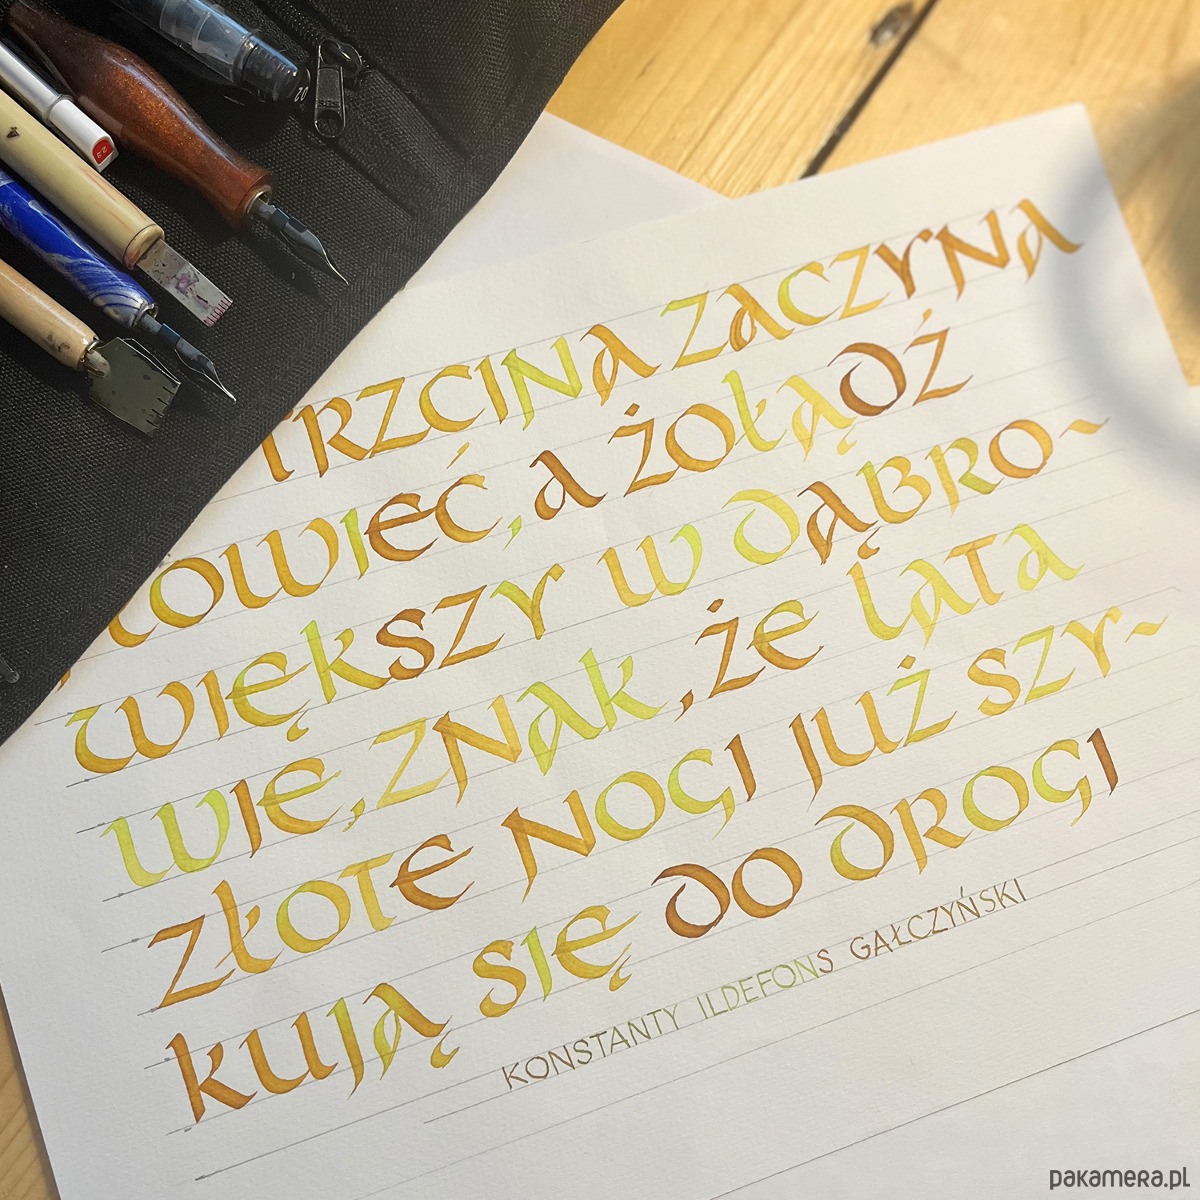 TRZCINA ZACZYNA
ŁOWIEĆ, A ŻOŁĄDŹ
WIĘKSZY W DĄBRO-
WIE, ZNAK, ŻE LATA
ZŁOTE NOGI JUŻ SZY-
KUJĄ SIĘ DO DROGI
KONSTANTY ILDEFONS GAŁCZYŃSKI
pakamera.pl